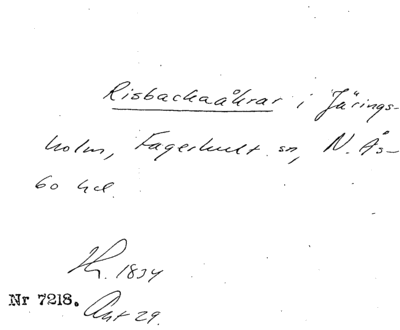 Risbackaåkrar i Järings-
holm, Fagerhult sn, N. Ås-
bo hd.
Th. 1834
Nr 7218. Ant 29.